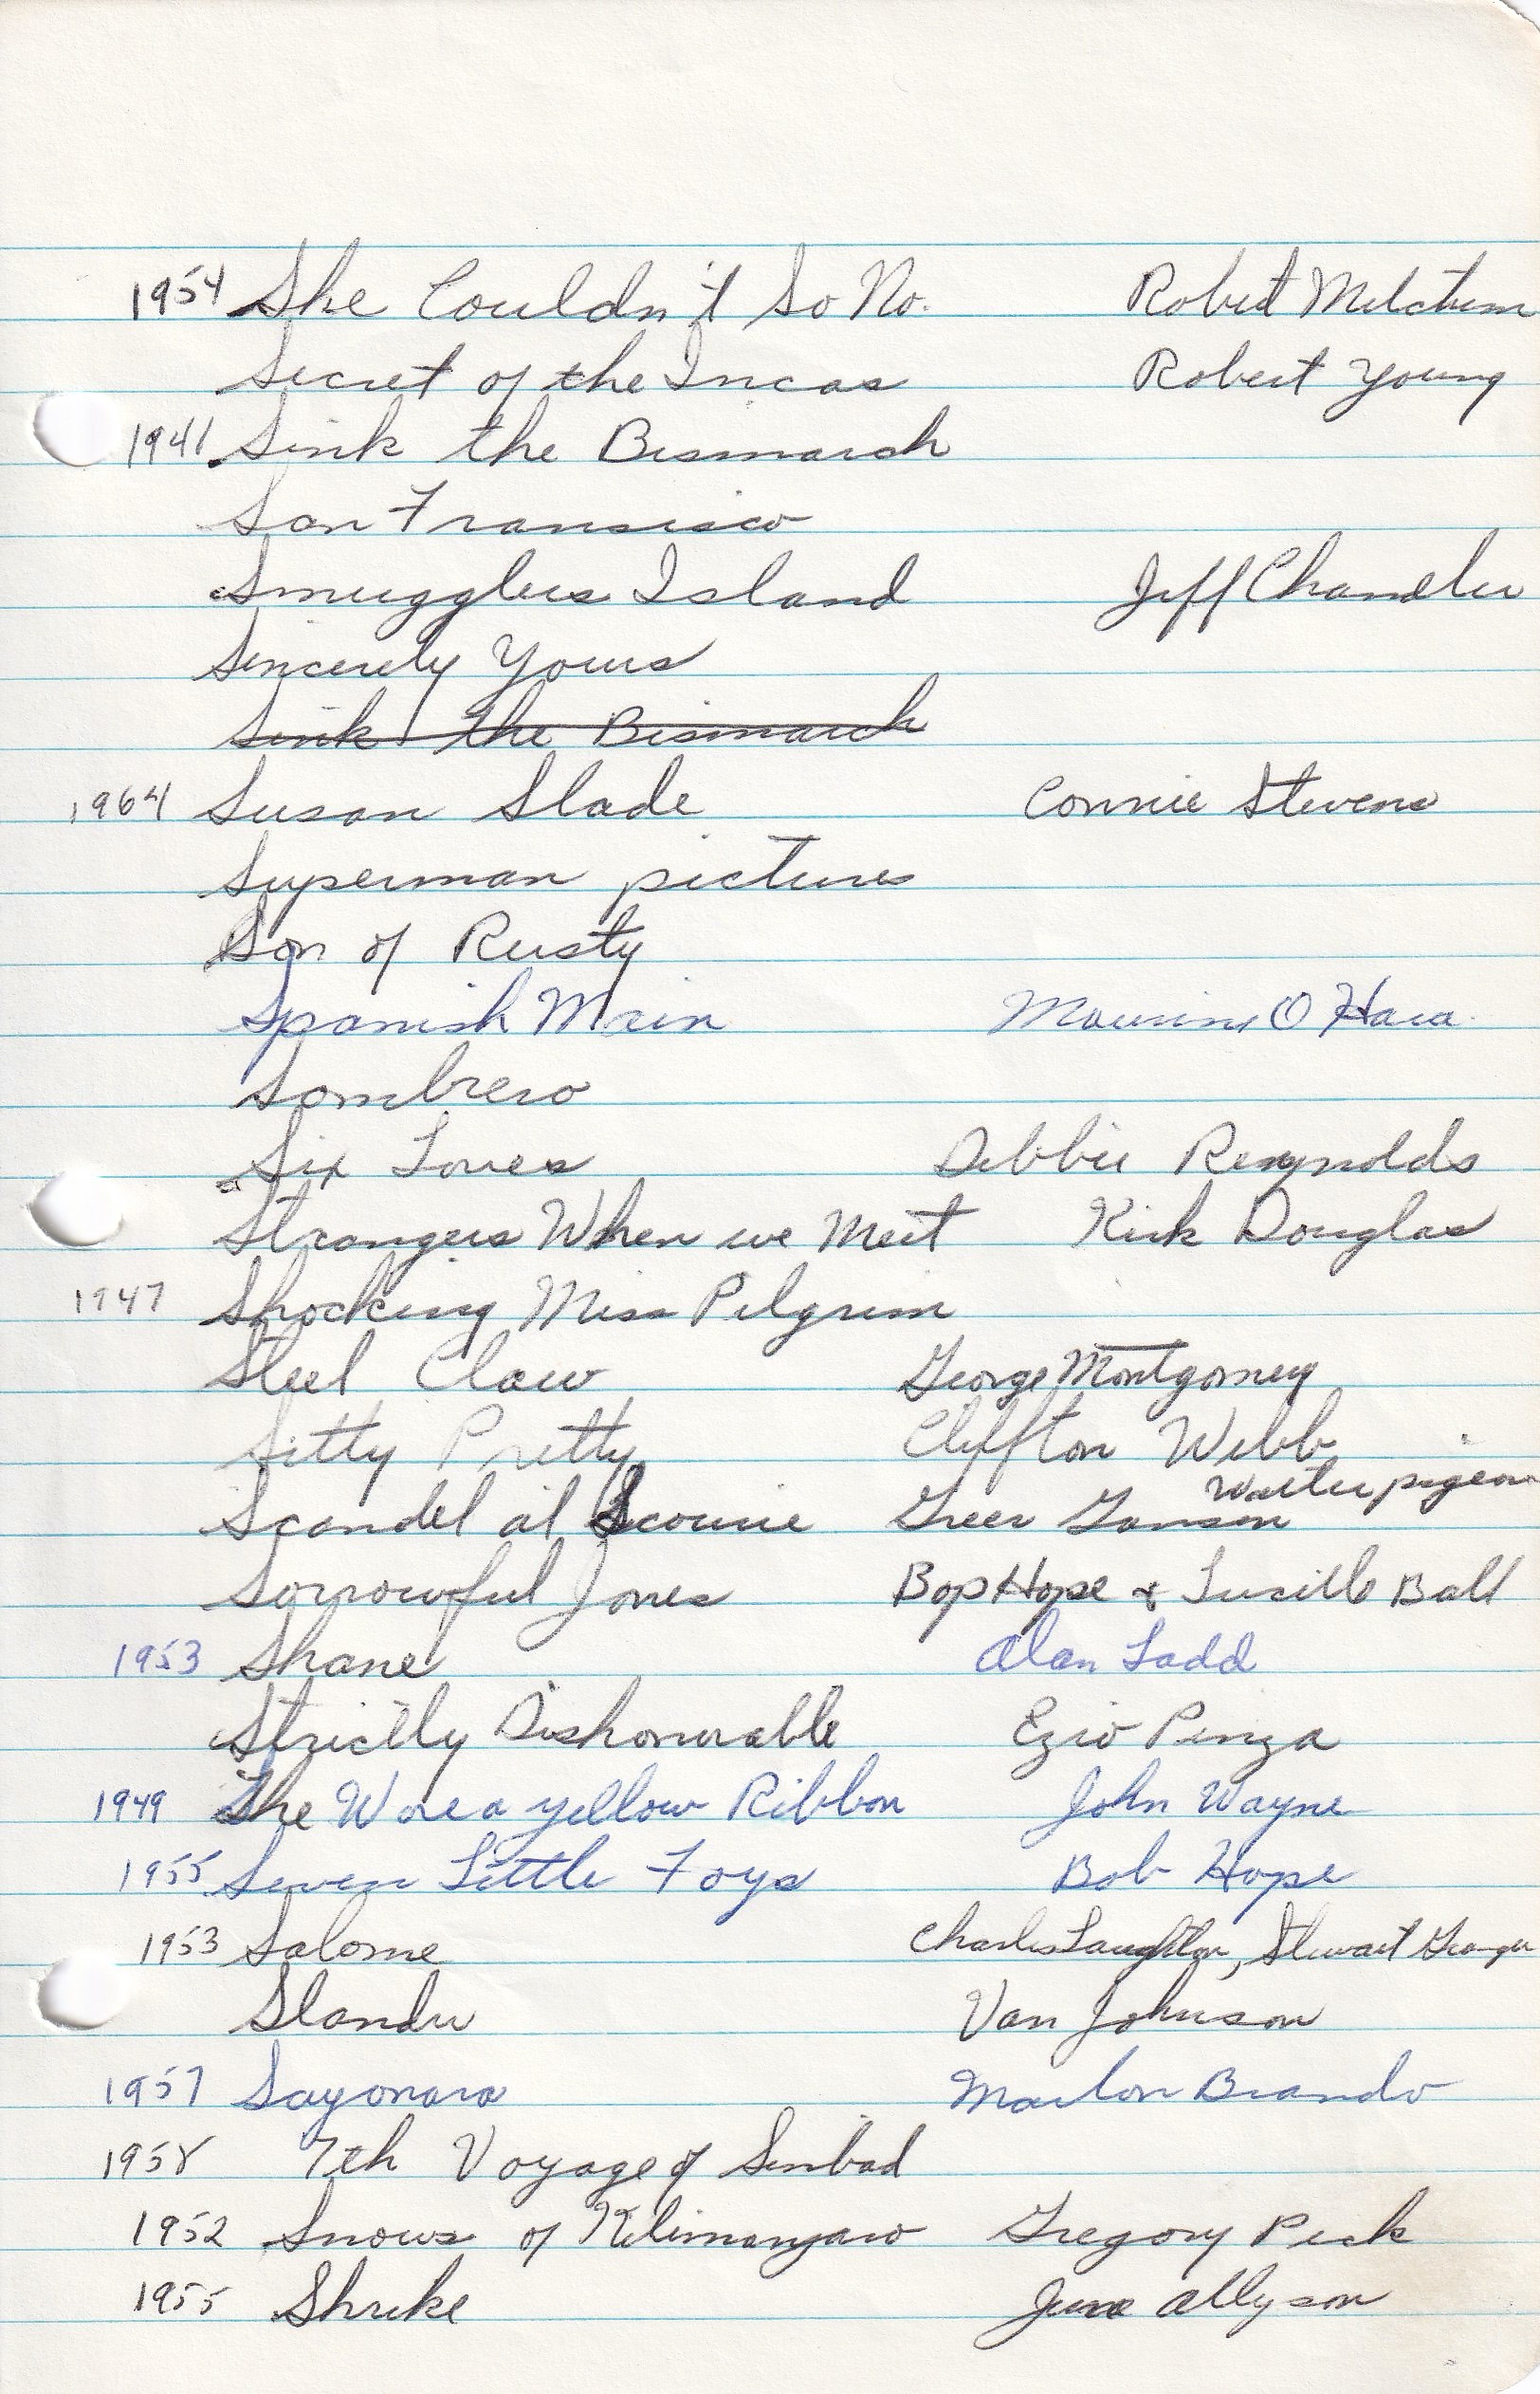 1954 She Couldn't So No. Robert Mitchum
Secret of the Incas Robert Young
1941 Sink the Bismarck
San Fransisco
Smugglers Island Jeff Chandler
Sincerely Yours
Sink the Bismarck
1964 Susan Slade Connie Stevens
Superman pictures
Son of Rusty
Spanish Main O Hara
Sombrero
Six Loves Debbie Reynolds
Strangers When we Meet Kirk Douglas
1947 Shocking Miss Pilgrim
Steel Claw George Montgomery
Sitty Pretty Cliffton Webb
Walter pigeon
Scandel at Scourie Greer Garson
Sorrowful Jones Bop Hope & Lucille Ball
1953 Shane Alan Ladd
Strictly Dishonorable Ezio Pinza
1949 She Wore a yellow Ribbon John Wayne
1955 Seven Little Foys Bob Hope
1953 Salome Charles Laughton, Stewart Granger
Slander Van Johnson
1957 Sayonara Marlon Brando
1958 7th Voyage of Sinbad
1952 Snows of Kilimanjaro Gregory Peck
1955 Shrike June Allyson